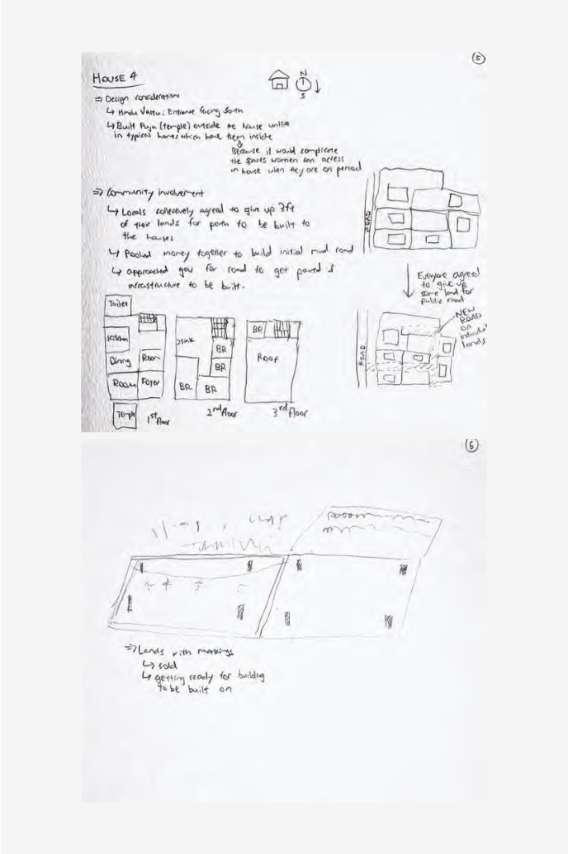 5
HOUSE 4
N
S
⇒ Design considerations
↳ Hindu Vastu: Entrance facing South
↳ Built Puja (temple) outside the house unlike
in typical homes which have them inside
Because it would complicate
the spaces women can access
in house when they are on period
⇒ Community involvement
↳ Locals collectively agreed to give up 3ft
of their lands for path to be built to
the houses
↳ Pooled money together to build initial mud road
↳ approached gov for road to get paved &
infrastructure to be built.
ROAD
Everyone agreed
to give up
some land for
public road
NEW
ROAD
on
individual
lands
ROAD
Toilet
Kitchen
Dining
Room
Room
Foyer
Temple
1st floor
BR
BR
BR
BR
2nd floor
BR
ROOF
3rd floor
6
⇒ Lands with markings
↳ sold
↳ getting ready for building
to be built on